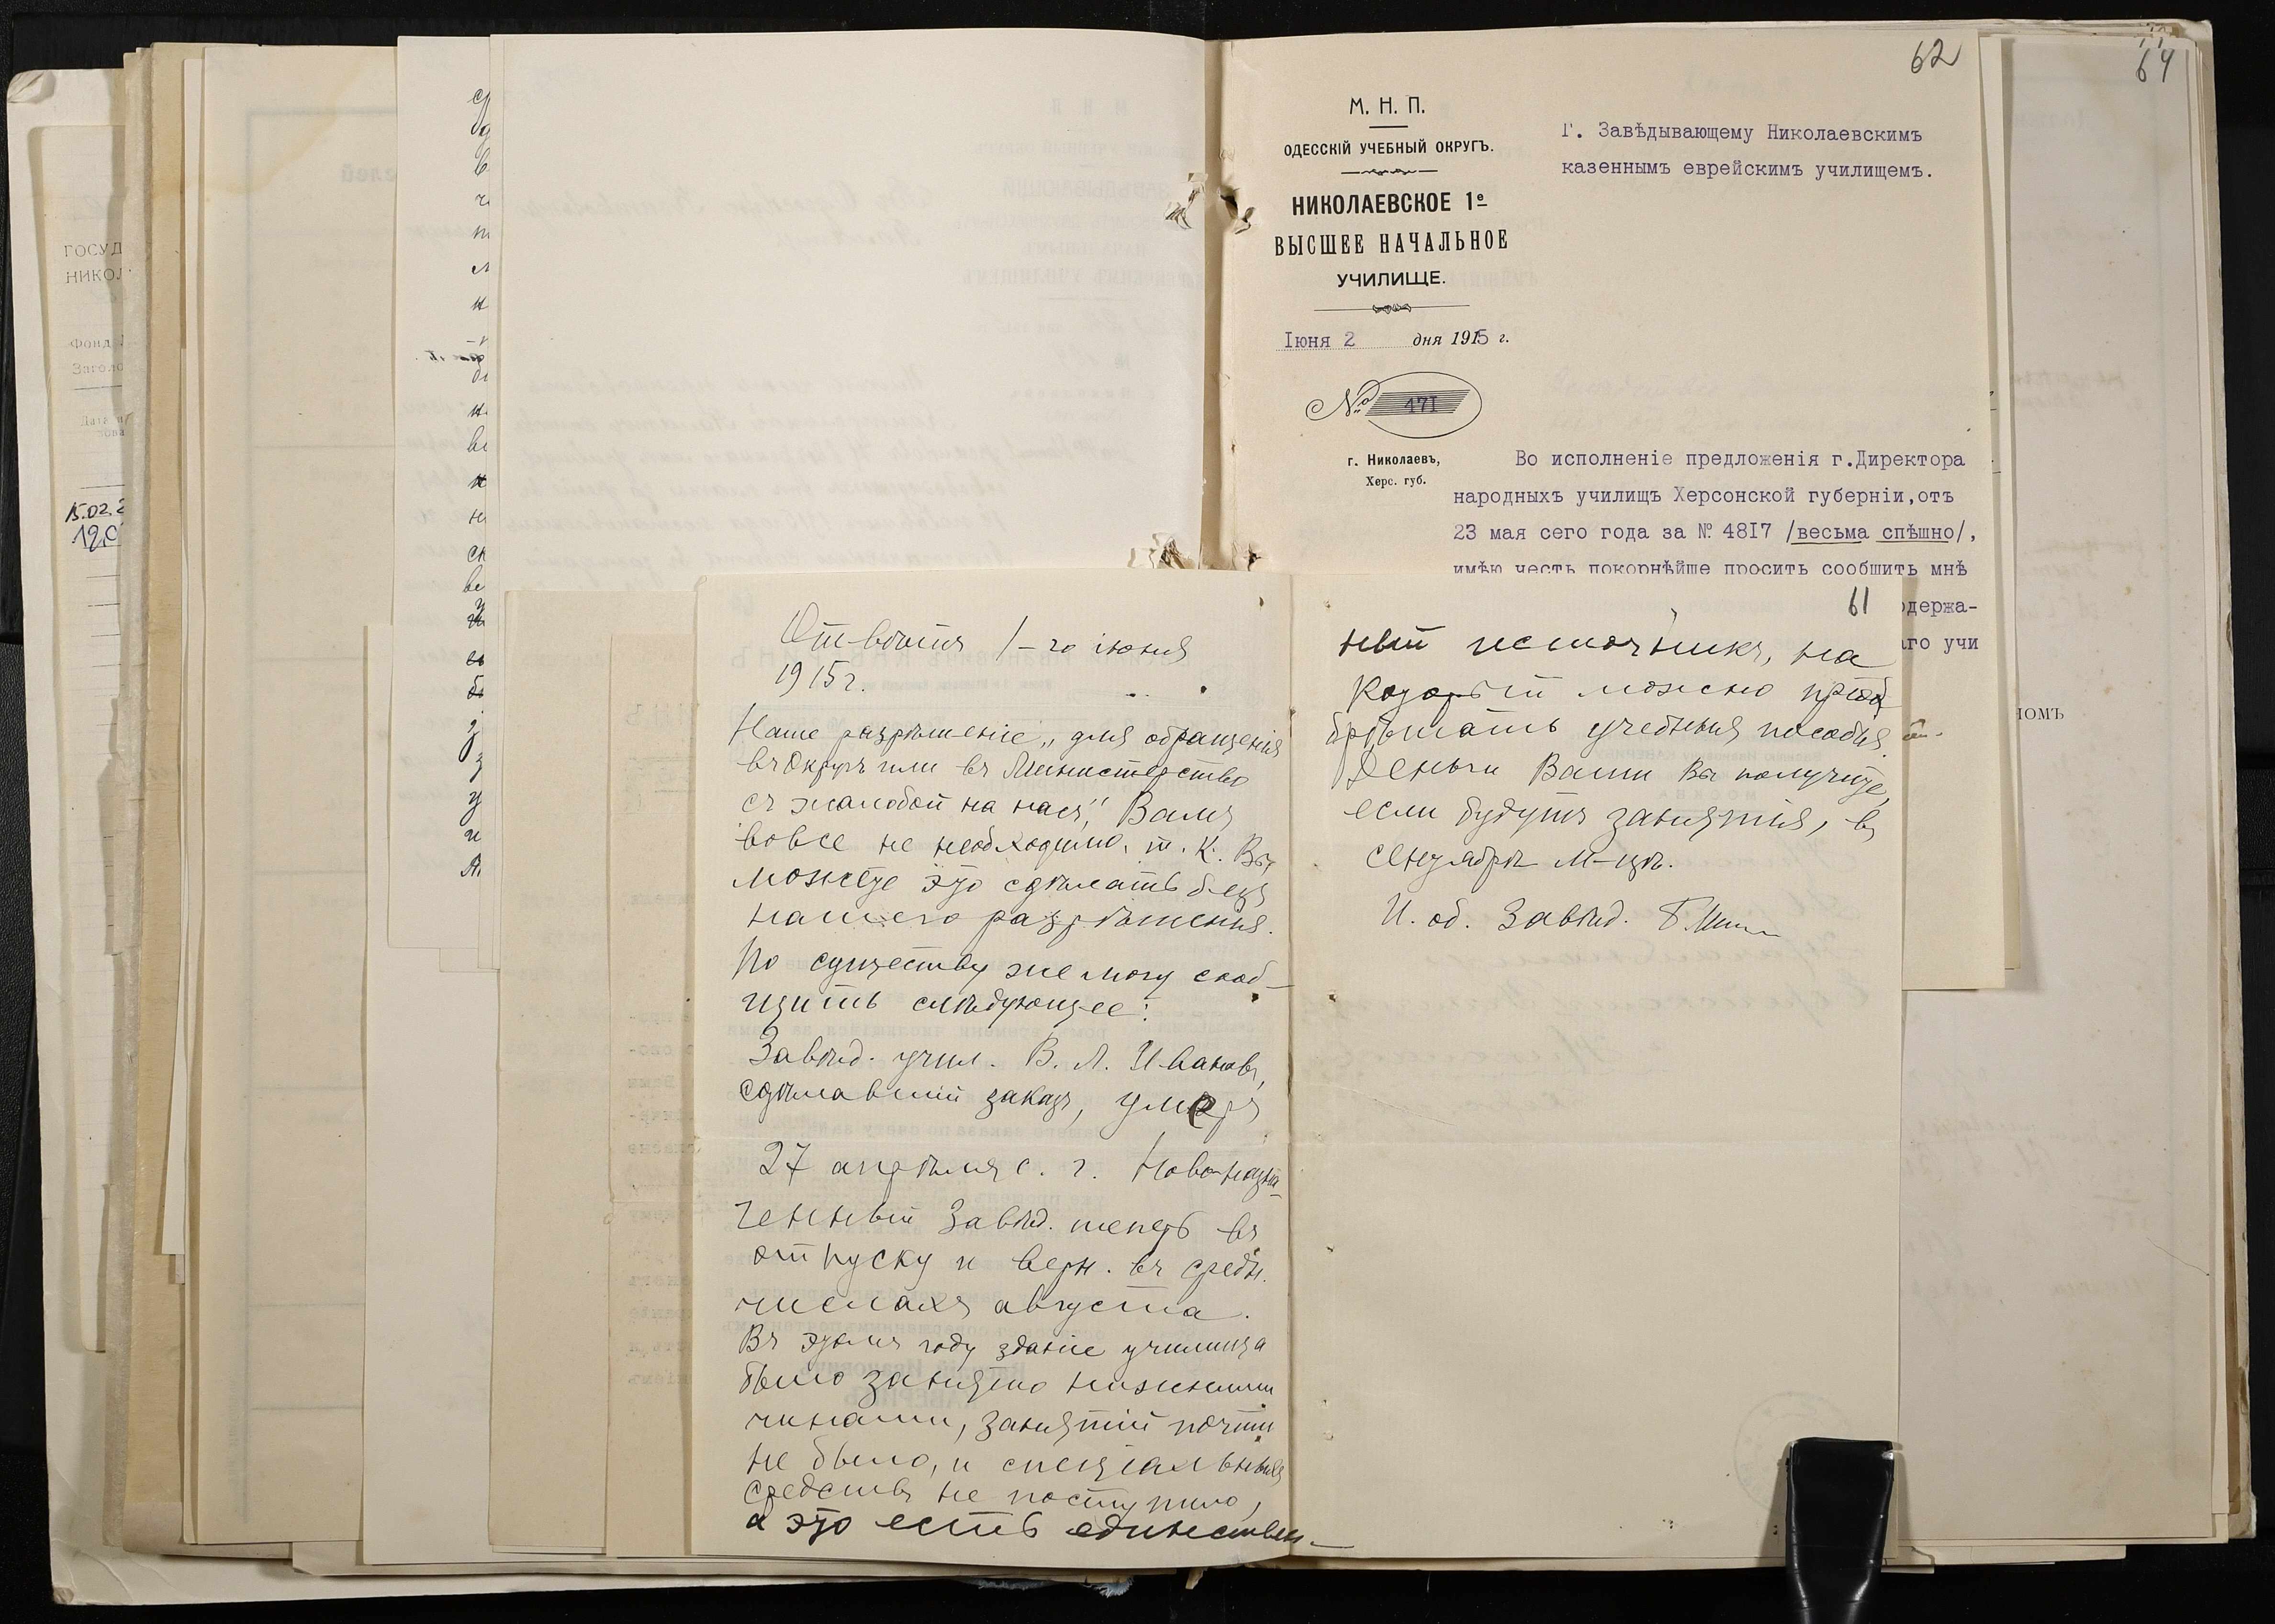 62
64
М. Н. П.
ОДЕССКІЙ УЧЕБНЫЙ ОКРУГЪ.
НИКОЛАЕВСКОЕ 1е
ВЫСШЕЕ НАЧАЛЬНОЕ
УЧИЛИЩЕ.
Iюня 2 дня 1915 г.
№ 471
г. Николаевъ,
Херс. губ.
Г. Завѣдывающему Николаевскимъ
казеннымъ еврейскимъ училищемъ.
Во исполненіе предложенія г.Директора
народныхъ училищъ Херсонской губерніи,отъ
23 мая сего года за № 48I7 /весьма спѣшно/,
имѣю честь покорнѣйше просить сообщить мнѣ
одержа-
аго учи
Отвѣтить 1-го іюня
1915 г.
Наше разрѣшеніе „для обращенія
въ Округъ или въ Министерство
съ жалобой на насъ" Вамъ
вовсе не необходимо, т. к. Вы
можете это сдѣлать безъ
нашего разрѣшенія.
По существу же могу сооб-
щить слѣдующее:
Завѣд. учил. В. Л. Ивановъ,
сдѣлавшій заказъ, умеръ
27 апрѣля с. г. Ново-назна-
ченный Завѣд. теперь въ
отпуску и верн. въ средн.
числахъ августа.
Въ этомъ году зданіе училища
было занято нижними
чинами, занятій почти
не было, и спеціальныхъ
средствъ не поступило,
а это есть единствен-
61
ный источникъ, на
который можно пріоб
брѣтать учебныя пособія.
Деньги Ваши Вы получите,
если будутъ занятія, въ
сентябрѣ м-цѣ.
И. об. Завѣд.
ГОСУД
НИКОЛ
Фонд
Заголо
15.02.2
ІОМЪ